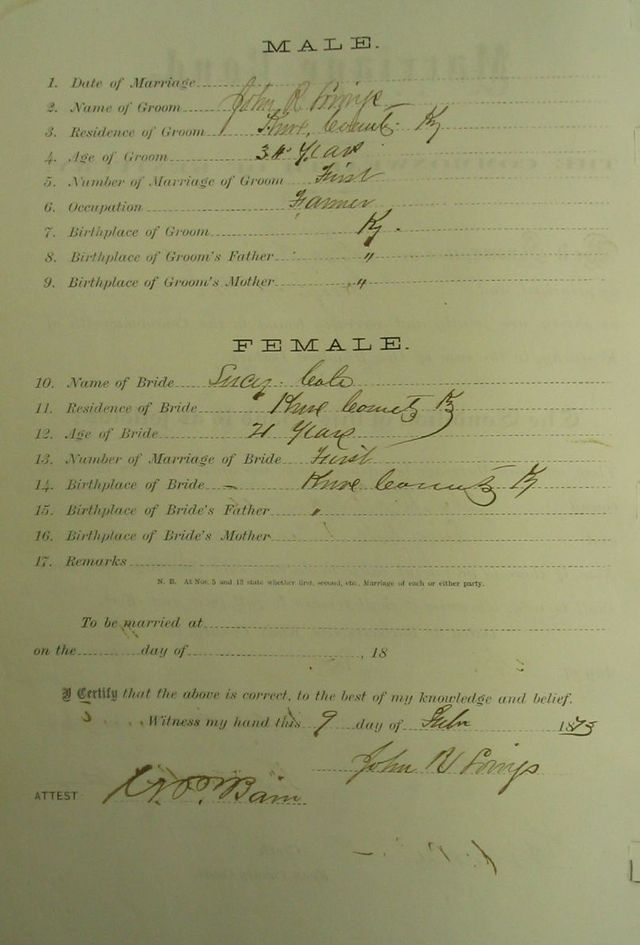 MALE.
1. Date of Marriage
2. Name of Groom John R
3. Residence of Groom Knox County Ky
4. Age of Groom Years
5. Number of Marriage of Groom First
6. Occupation Farmer
7. Birthplace of Groom Ky.
8. Birthplace of Groom's Father "
9. Birthplace of Groom's Mother "
FEMALE.
10. Name of Bride Lucy Cole
11. Residence of Bride Knox County Ky
12. Age of Bride 21 Years
13. Number of Marriage of Bride First
14. Birthplace of Bride - Knox County Ky
15. Birthplace of Bride's Father "
16. Birthplace of Bride's Mother
17. Remarks
N. B. At Nos. 5 and 13 state whether first, second, etc., Marriage of each or either party.
To be married at
on the day of , 18
I Certify that the above is correct, to the best of my knowledge and belief.
Witness my hand this 9 day of 1875
John R
ATTEST Bain